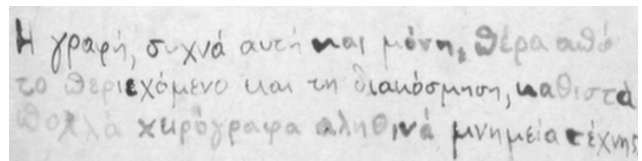 Η γραφή, συχνά αυτή και μόνη, πέρα από
το περιεχόμενο και τη διακόσμηση, καθιστά
πολλά χειρόγραφα αληθινά μνημεία τέχνης